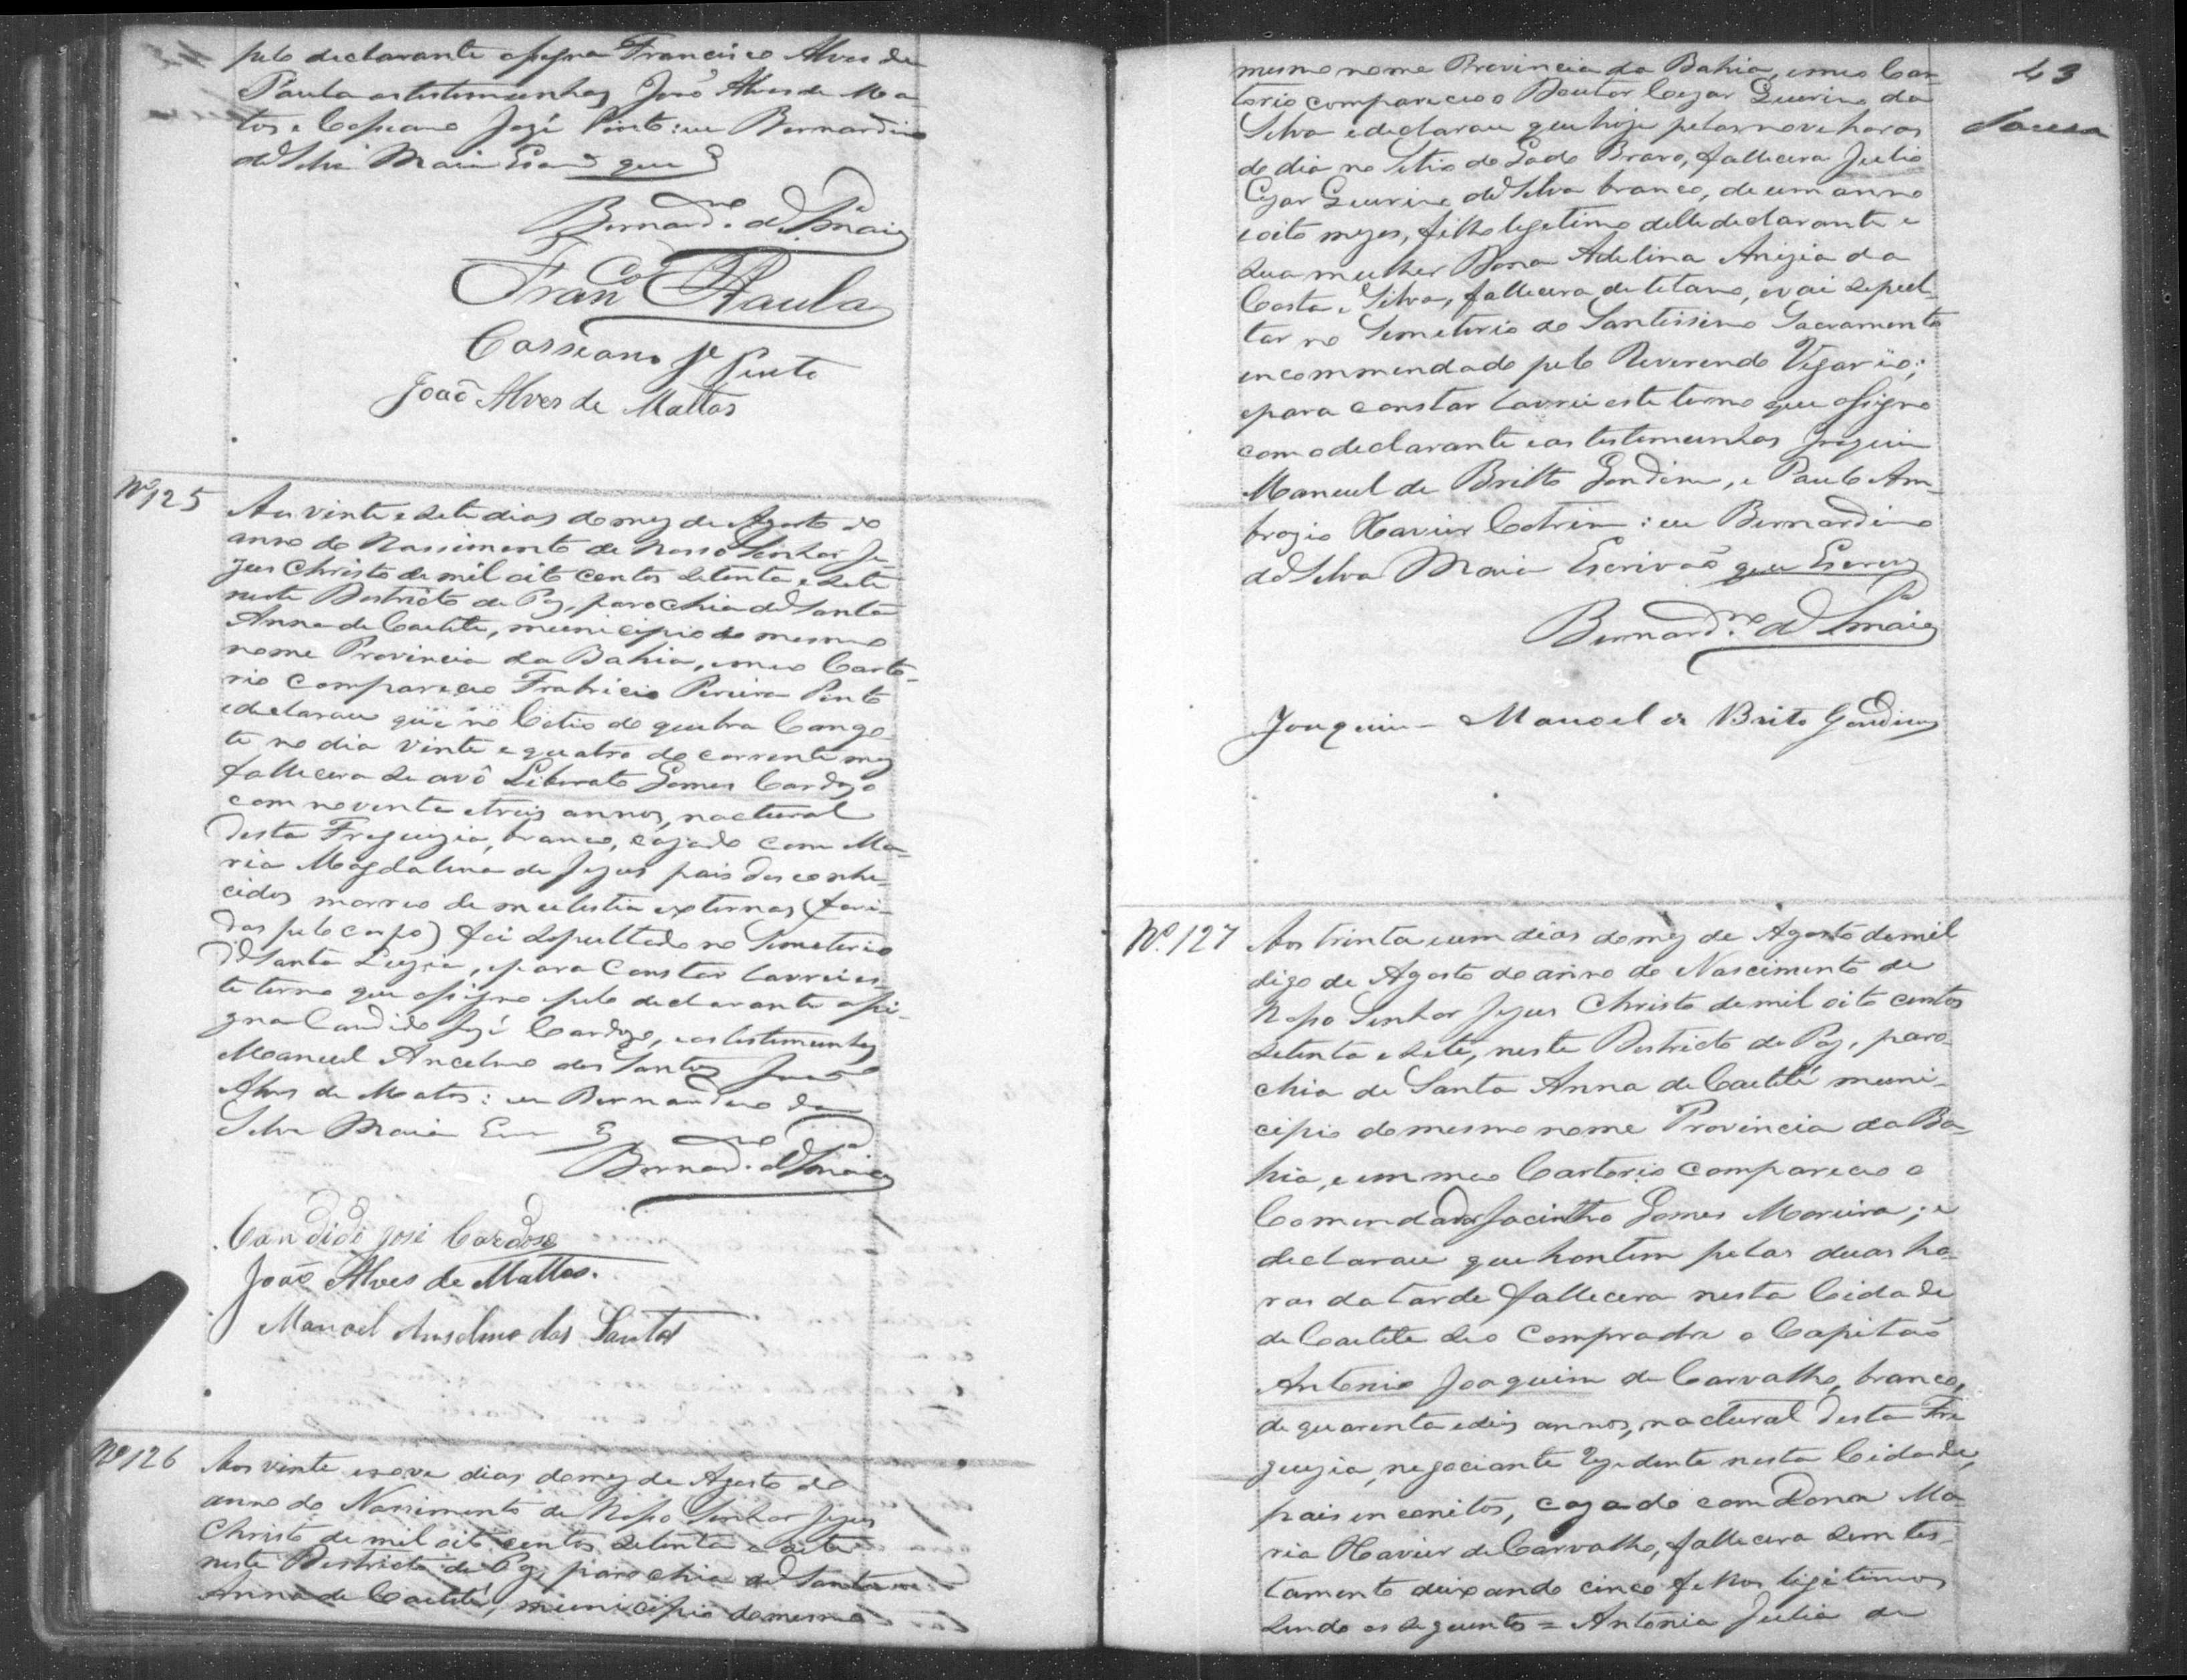 pelo declarante assigna Francisco Alves de
Paula as testemunhas João Alves de Ma-
tos e Casseano José Pinto: eu Bernardino
da Silva Maia Escr que E
Bernard.no da S.a Maia
Fran.co Paula
Casseano Je Pinto
João Alves de Mattos
Nº 125
Aos vinte e sete dias do mez de Agosto do
anno do Nassimento de Nosso Senhor Je-
zus Christo de mil oito centos setenta e sete
neste Destricto de Paz, parochia de Santa
Anna de Caetité, municipio do mesmo
nome Provincia da Bahia, em meo Carto-
rio compareceo Frabricio Pereira Pinto
e declarou que no Citio do quebra Cango-
te no dia vinte e quatro do corrente mez
fallecera se avô Liberato Gomes Cardozo
com noventa e treis annos, nactural
desta Freguizia, branco, cazado com Ma-
ria Magdalena de Jezus pais desconhe-
cidos morreo de mulestia externas (feri-
das pelo corpo) foi sepultado no Simeterio
de Santa Luzia, e para constar lavrei es-
te termo que assigno e pelo declarante assi-
gna Candido José Cardozo, e as testemunhas
Manuel Ancelmo dos Santos João
Alves de Matos: eu Bernardino da
Silva Maia Escr E
Bernard.no da S.a Maia
Candido José Cardoso
João Alves de Mattos.
Manoel Anselmo dos Santos
Nº 126
Aos vinte e nove dias do mez de Agosto do
anno do Nassimento de Nosso Senhor Jezus
Christo de mil oito centos setenta e sete
neste Destricto de Paz, parochia de Santa
Anna de Caetité, municipio do mesmo
43
Souza
mesmo nome Provincia da Bahia, em meo Car-
torio compareceo o Doutor Cezar Zeurino da
Silva e declarou que hoje pelas nove horas
do dia no Sitio do Gado Bravo, fallecera Julio
Cezar Zeurino da Silva branco, de um anno
e oito mezes, filho legetimo delle declarante e
sua mulher Dona Adelina Anizia da
Costa e Silva, fallecera de tetano, e vai sepul-
tar no Semeterio do Santissimo Sacramento
encommendado pelo Reverendo Vigario;
e para constar lavrei este termo que assigno
com o declarante e as testemunhas Joaquim
Manuel de Britto Gondim, e Paulo Am-
brozio Xavier Cotrim: eu Bernardino
da Silva Maia Escrivão que Escrevy
Bernard.no da S.a Maia
Joaquim Manoel de Brito Gondim
Nº. 127
Aos trinta e um dias do mez de Agosto de mil
digo de Agosto do anno do Nascimento de
Nosso Senhor Jezus Christo de mil oito centos
setenta e sete, neste Destricto de Paz, paro-
chia de Santa Anna de Caetité muni-
cipio do mesmo nome Provincia da Ba-
hia, e em meo Cartorio compareceo o
Comendador Jacintho Gomes Moreira; e
declarou que hontem pelas duas ho-
ras da tarde fallecera nesta Cidade
de Caetité seo Compradre o Capitão
Antonio Joaquim de Carvalho, branco,
de quarenta e dois annos, nactural desta Fre-
guezia, negociante rezidente nesta Cidade,
pais incognitos, cazado com Dona Ma-
ria Xavier de Carvalho, fallecera sem tes-
tamento deixando cinco filhos ligitimos
sendo os seguintes = Antonia Julia de